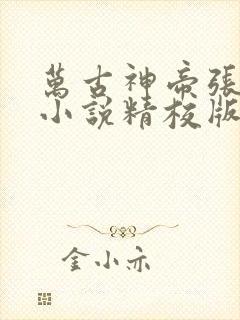 萬古神帝張
小說精校版
金小亦